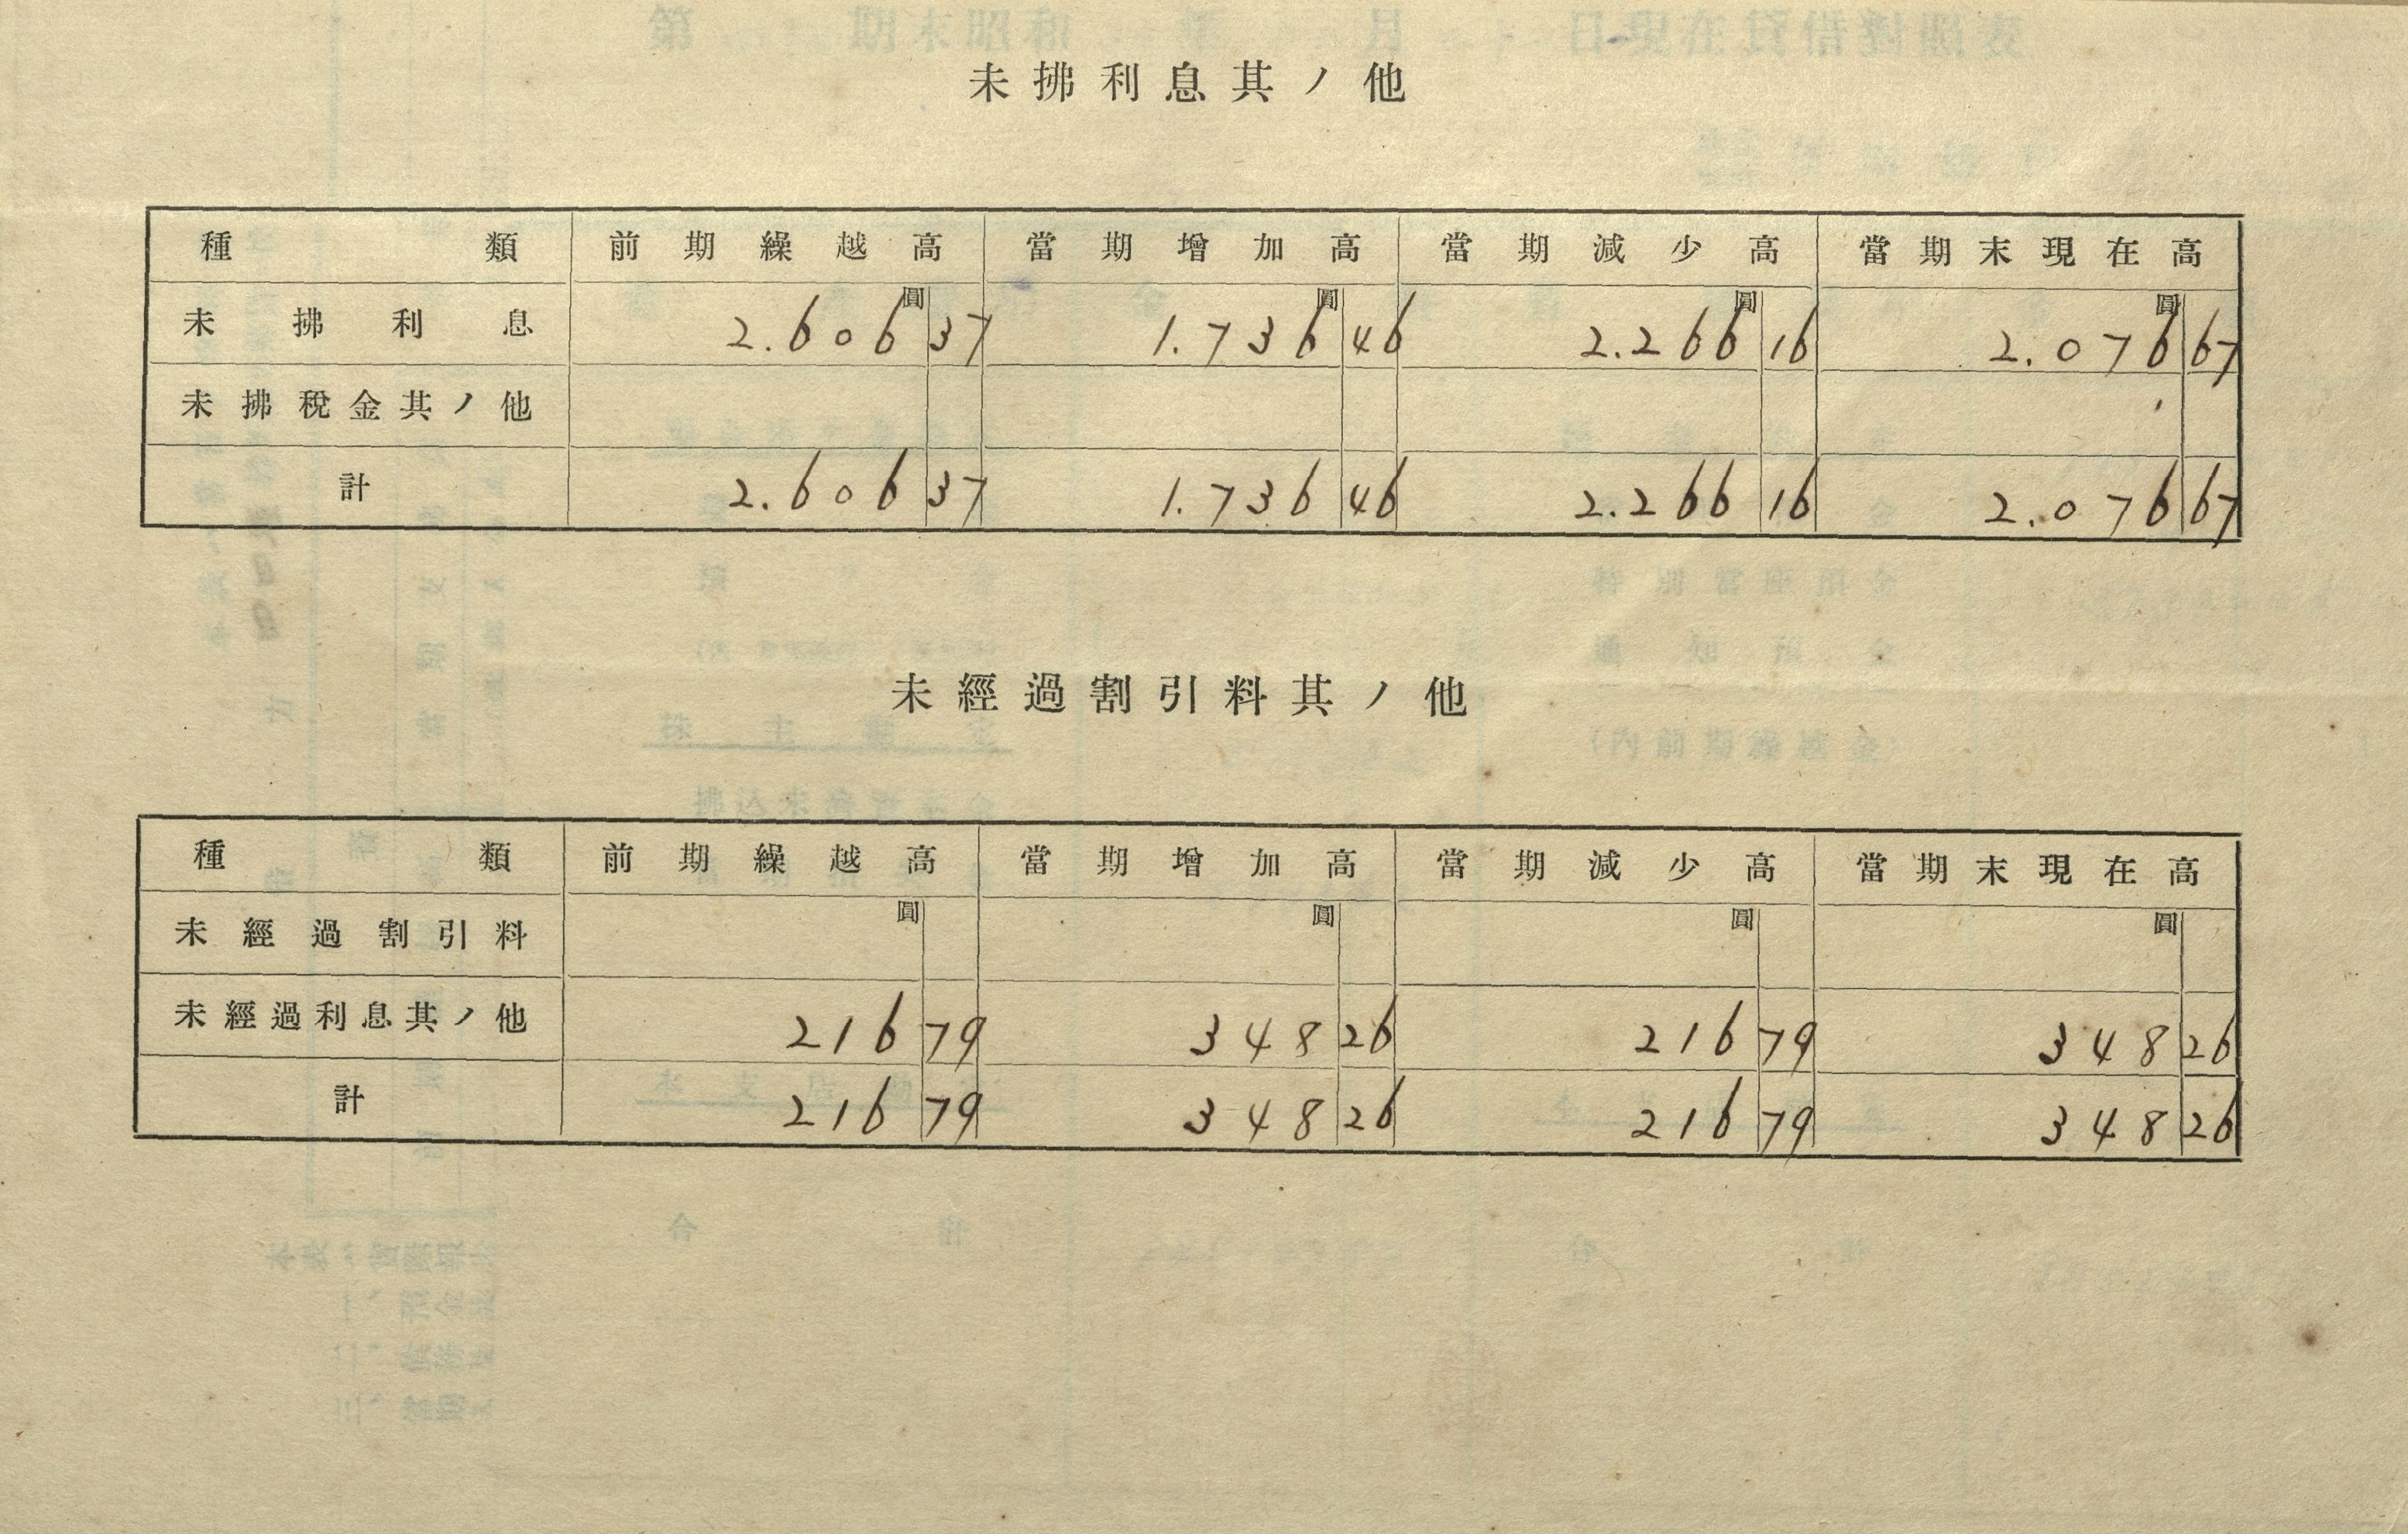 未拂利息其ノ他
種類 前期繰越高 當期增加高 當期減少高 當期末現在高
未拂利息 圓 2.606 37 圓 1.736 46 圓 2.266 16 圓 2.076 67
未拂稅金其ノ他
計 2.606 37 1.736 46 2.266 16 2.076 67
未經過割引料其ノ他
種類 前期繰越高 當期增加高 當期減少高 當期末現在高
未經過割引料 圓 圓 圓 圓
未經過利息其ノ他 216 79 348 26 216 79 348 26
計 216 79 348 26 216 79 348 26